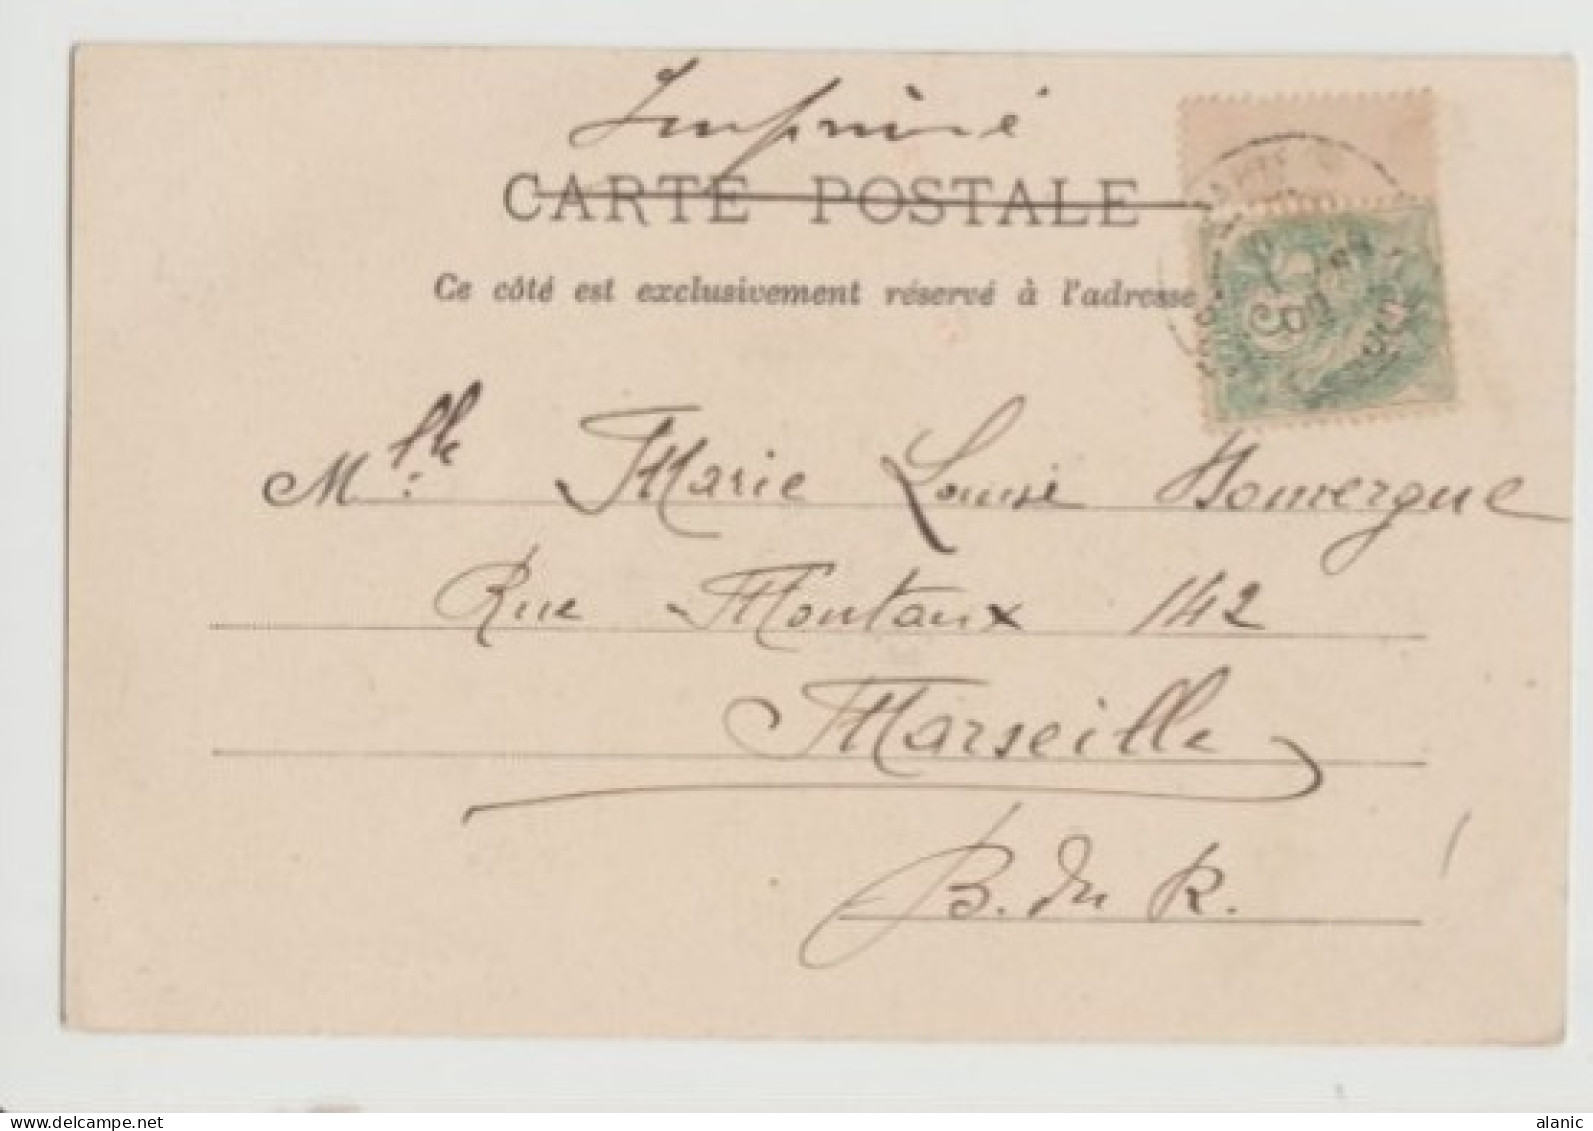 Imprimé
CARTE POSTALE
Ce côté est exclusivement réservé à l'adresse
Mlle Marie Louise Domergue
Rue Montaux 142
Marseille
B. du R.
delcampe.net
alanic